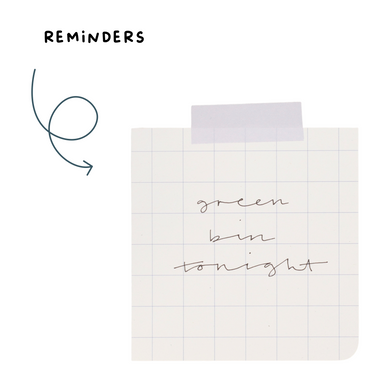 REMINDERS
green
bin
tonight